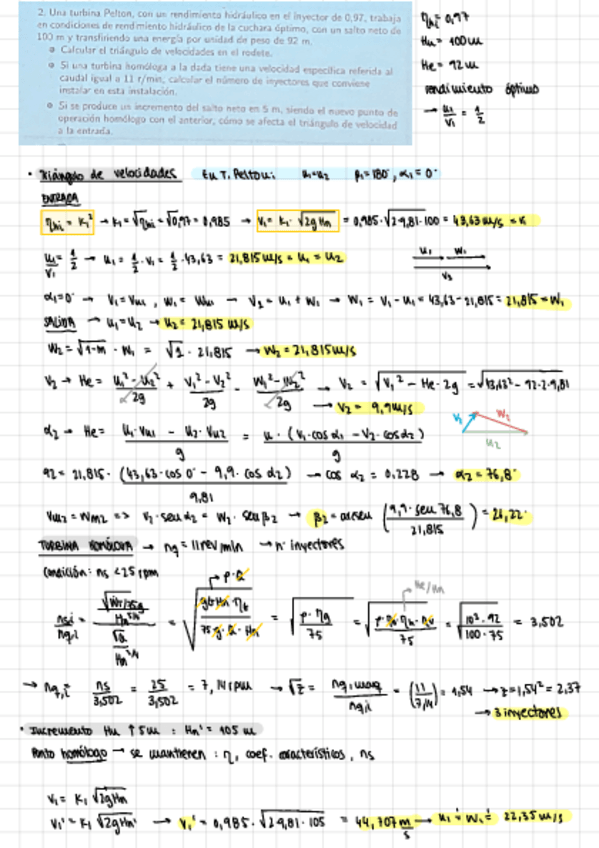 2. Una turbina Pelton, con un rendimiento hidráulico en el inyector de 0,97, trabaja
en condiciones de rendimiento hidráulico de la cuchara óptimo, con un salto neto de
100 m y transfiriendo una energía por unidad de peso de 92 m.
Calcular el triángulo de velocidades en el rodete.
Si una turbina homóloga a la dada tiene una velocidad específica referida al
caudal igual a 11 r/min, calcular el número de inyectores que conviene
instalar en esta instalación.
Si se produce un incremento del salto neto en 5 m, siendo el nuevo punto de
operación homólogo con el anterior, cómo se afecta el triángulo de velocidad
a la entrada.
ηhi = 0,97
Hn = 100 m
He = 92 m
rendimiento óptimo
→ u1/v1 = 1/2
• Triángulo de velocidades En T. Pelton: u1=u2 β1=180°, α1=0°
ENTRADA
ηhi = K1² → K1 = √ηhi = √0,97 = 0,985 → v1 = K1·√2gHn = 0,985·√2·9,81·100 = 43,63 m/s = v1
u1/v1 = 1/2 → u1 = 1/2·v1 = 1/2·43,63 = 21,815 m/s = u1 = u2
u1 w1
v1
α1=0° → v1 = vu1, w1 = wu1 → v1 = u1 + w1 → w1 = v1 - u1 = 43,63 - 21,815 = 21,815 = w1
SALIDA → u1=u2 → u2 = 21,815 m/s
w2 = √1-m · w1 = √1 · 21,815 → w2 = 21,815 m/s
v2 → He = u1²-u2²/2g + v1²-v2²/2g - w1²-w2²/2g → v2 = √v1² - He·2g = √43,63² - 92·2·9,81
→ v2 = 9,9 m/s
v2 w2
u2
α2 → He = u1·vu1 - u2·vu2/g = u·(v1·cosα1 - v2·cosα2)/g
92 = 21,815·(43,63·cos 0° - 9,9·cos α2)/9,81 → cos α2 = 0,228 → α2 = 76,8°
vm2 = wm2 => v2·senα2 = w2·senβ2 → β2 = arcsen (9,9·sen 76,8/21,815) = 26,22°
TURBINA HOMÓLOGA → nq = 11 rev/min → n° inyectores
Condición: ns < 25 rpm
→ ρ·Q
He/Hn
= √ρ·ηg/75 = √10³·92/100·75 = 3,502
→ nq,i ns/3,502 = 25/3,502 = 7,14 rpm → √z = nq,maq/nq,i = (11/7,14) = 1,54 → z = 1,54² = 2,37
→ 3 inyectores
• Incremento Hn ↑ 5 m : Hn' = 105 m
Punto homólogo → se mantienen: η, coef. característicos, ns
v1 = K1 √2gHn
v1' = K1 √2gHn' → v1' = 0,985·√2·9,81·105 = 44,707 m/s → u1' = w1' = 22,35 m/s